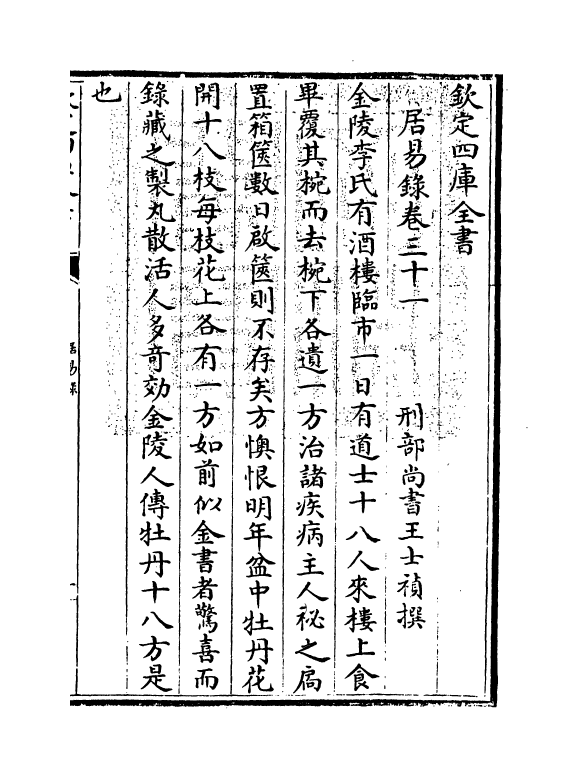 欽定四庫全書
居易錄卷三十一　刑部尚書王士禎撰
金陵李氏有酒樓臨市一日有道士十八人來樓上食
畢覆其椀而去椀下各遺一方治諸疾病主人秘之扃
置箱篋數日啟篋則不存矣方懊恨明年盆中牡丹花
開十八枝每枝花上各有一方如前似金書者驚喜而
錄藏之製丸散活人多奇効金陵人傳牡丹十八方是
也
居易錄